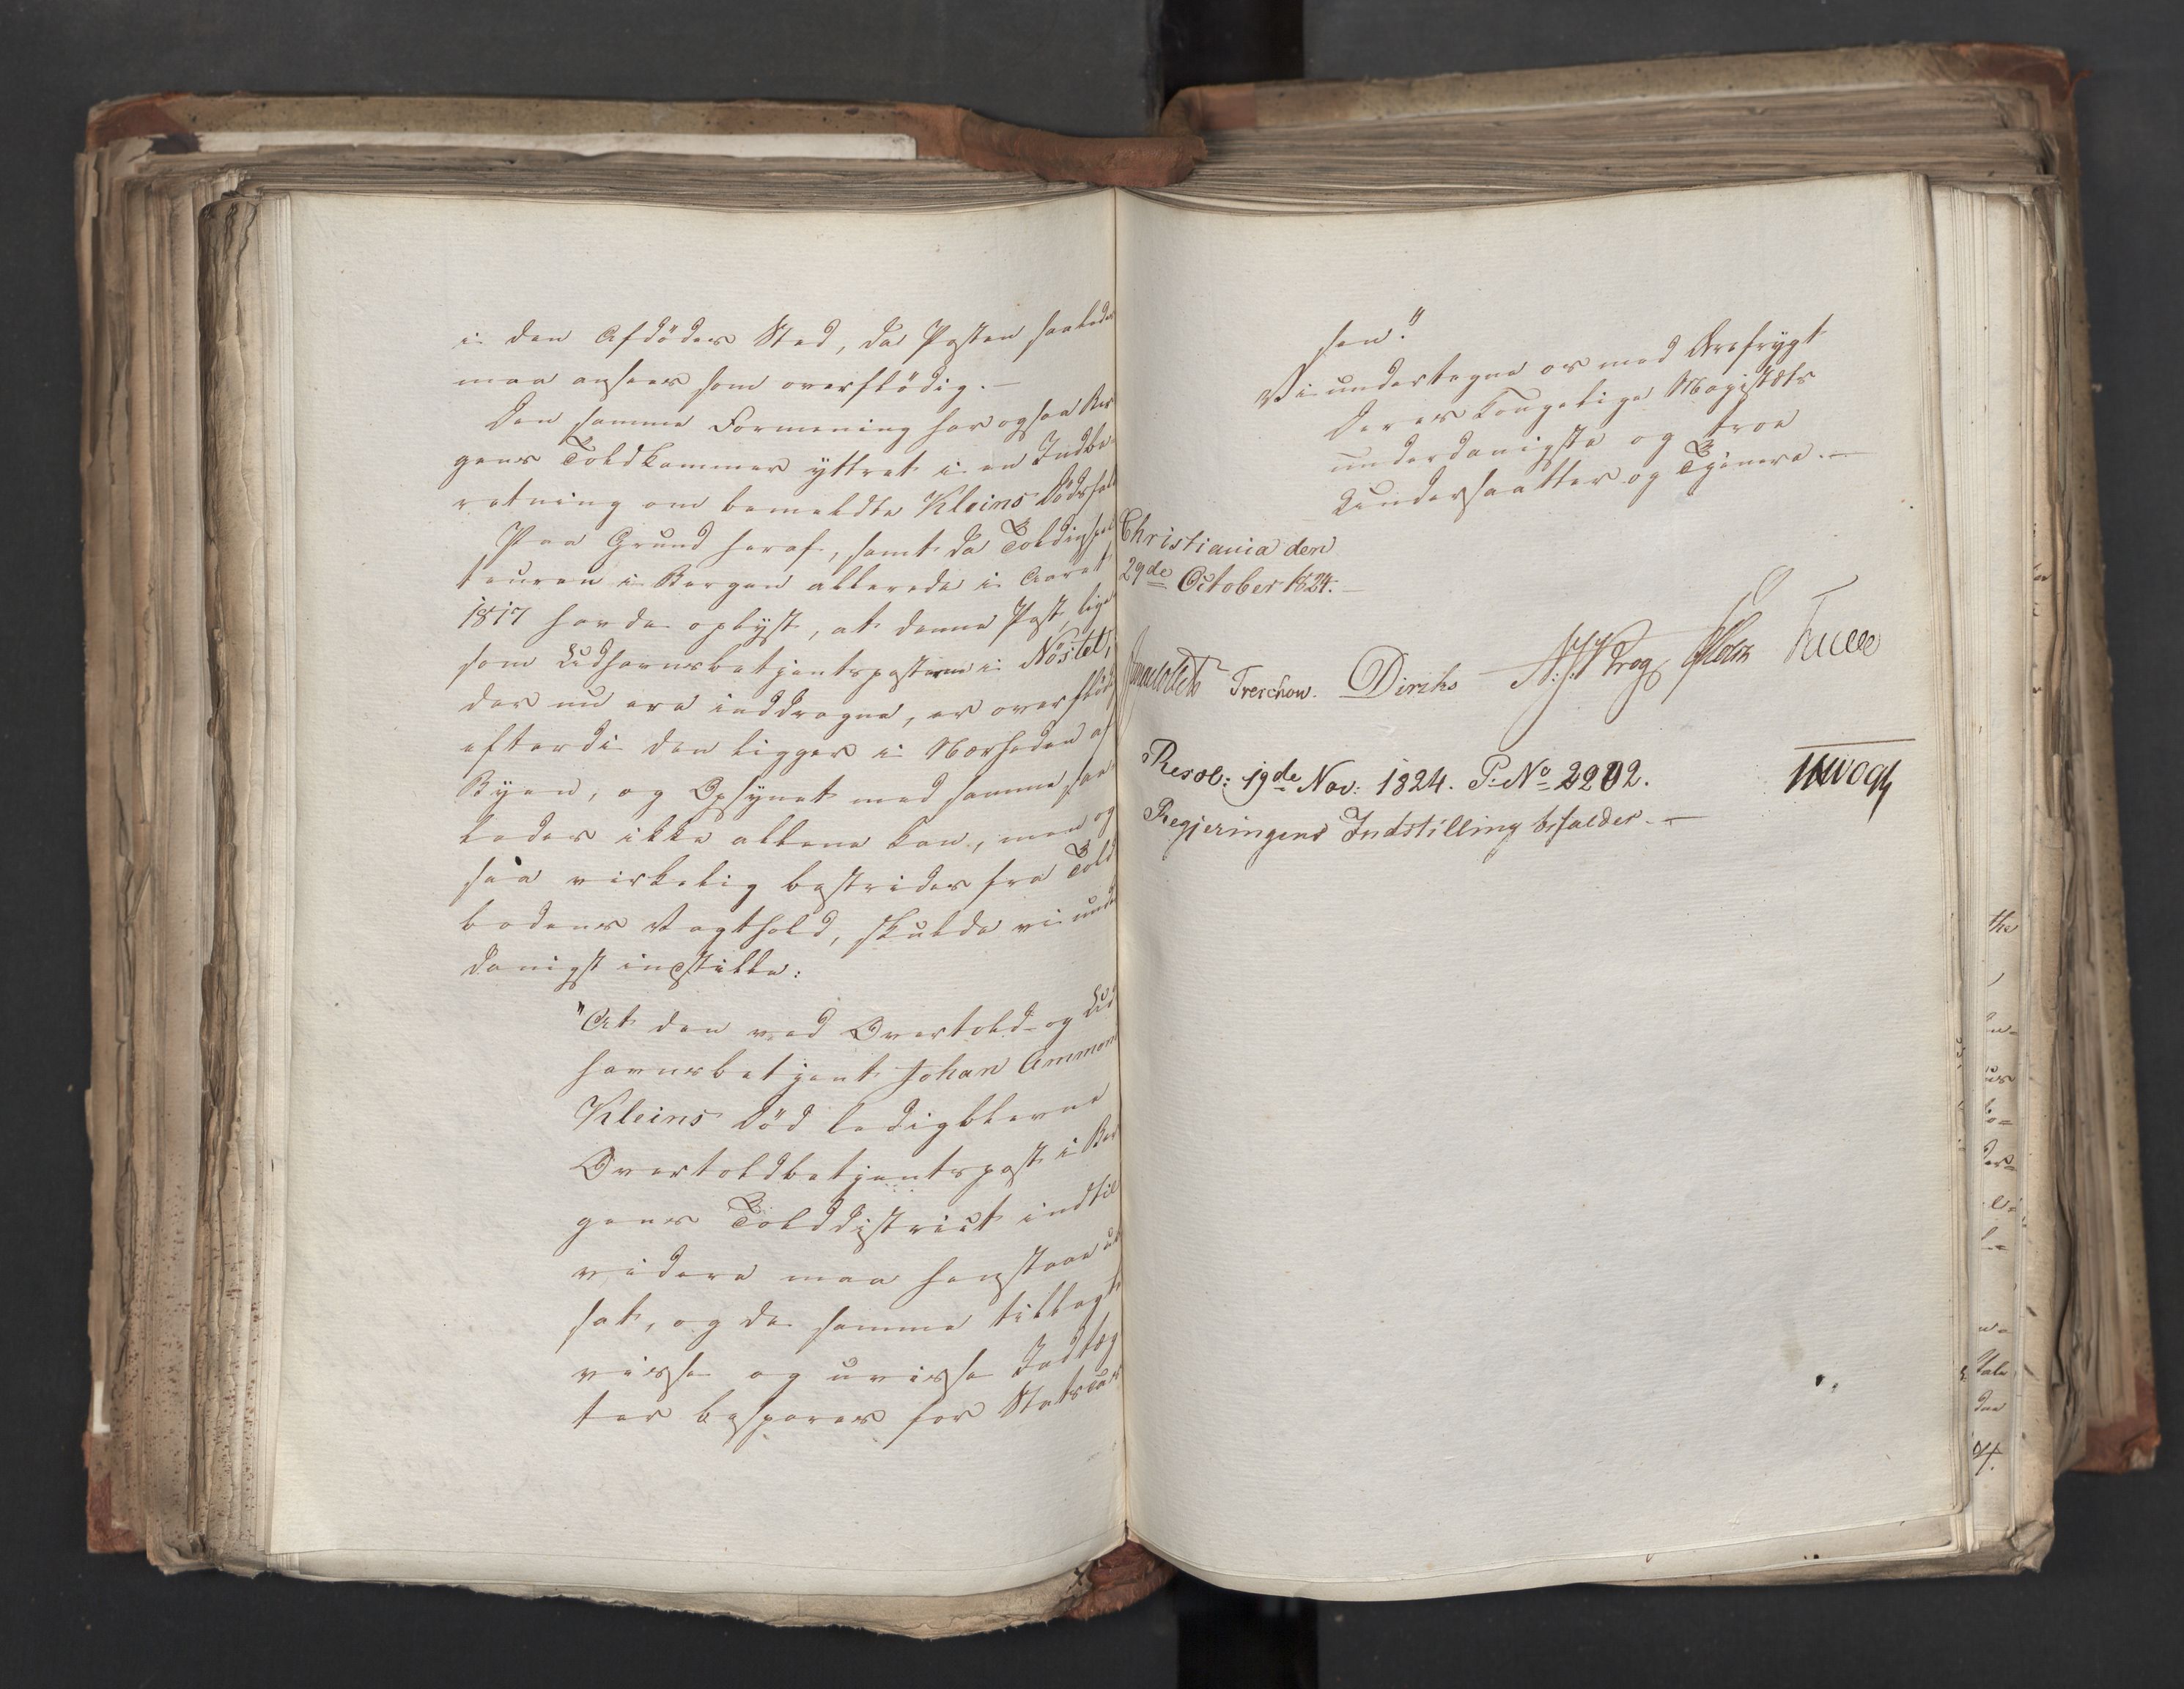 i den Afdödes Sted, da Posten saaledes
maa ansees som overflödig. —
Den samme Formening har ogsaa Ber
gens Toldkammer yttret i en Indbe-
retning om bemeldte Kleins Dödsfald
Paa Grund heraf, samt da Toldinspec
teuren i Bergen allerede i Aaret
1817 havde oplyst, at denne Post, lige
som Udhavnsbetjentsposterne i Nöstet,
der nu ere inddragne, er overflödig
efterdi den ligger i Nærheden af
Byen, og Opsynet med samme saa-
ledes ikke allene kan, men og
saa virkelig bestrides fra Told
bodens Vagthold, skulde vi under
danigst indstille:
"At den ved Overtold- og Ud
havnsbetjent Johan Ammon
Kleins Död ledigblevne
Overtoldbetjentspost i Ber
gens Tolddistrict indtil
videre maa henstaae ube
sat, og de samme tillagte
visse og uvisse Indtæg
ter bespares for Statscas
sen."
Vi undertegne os med Ærefrygt
Deres Kongelige Majestæts
underdanigste og troe
Undersaatter og Tjenere. —
Christiania den
29de October 1824. —
Treschow. Diriks N.J. Krog Holst
Resol: 19de Nov: 1824. P. No 2202.
Regjeringens Indstilling bifaldes. —
Vogt